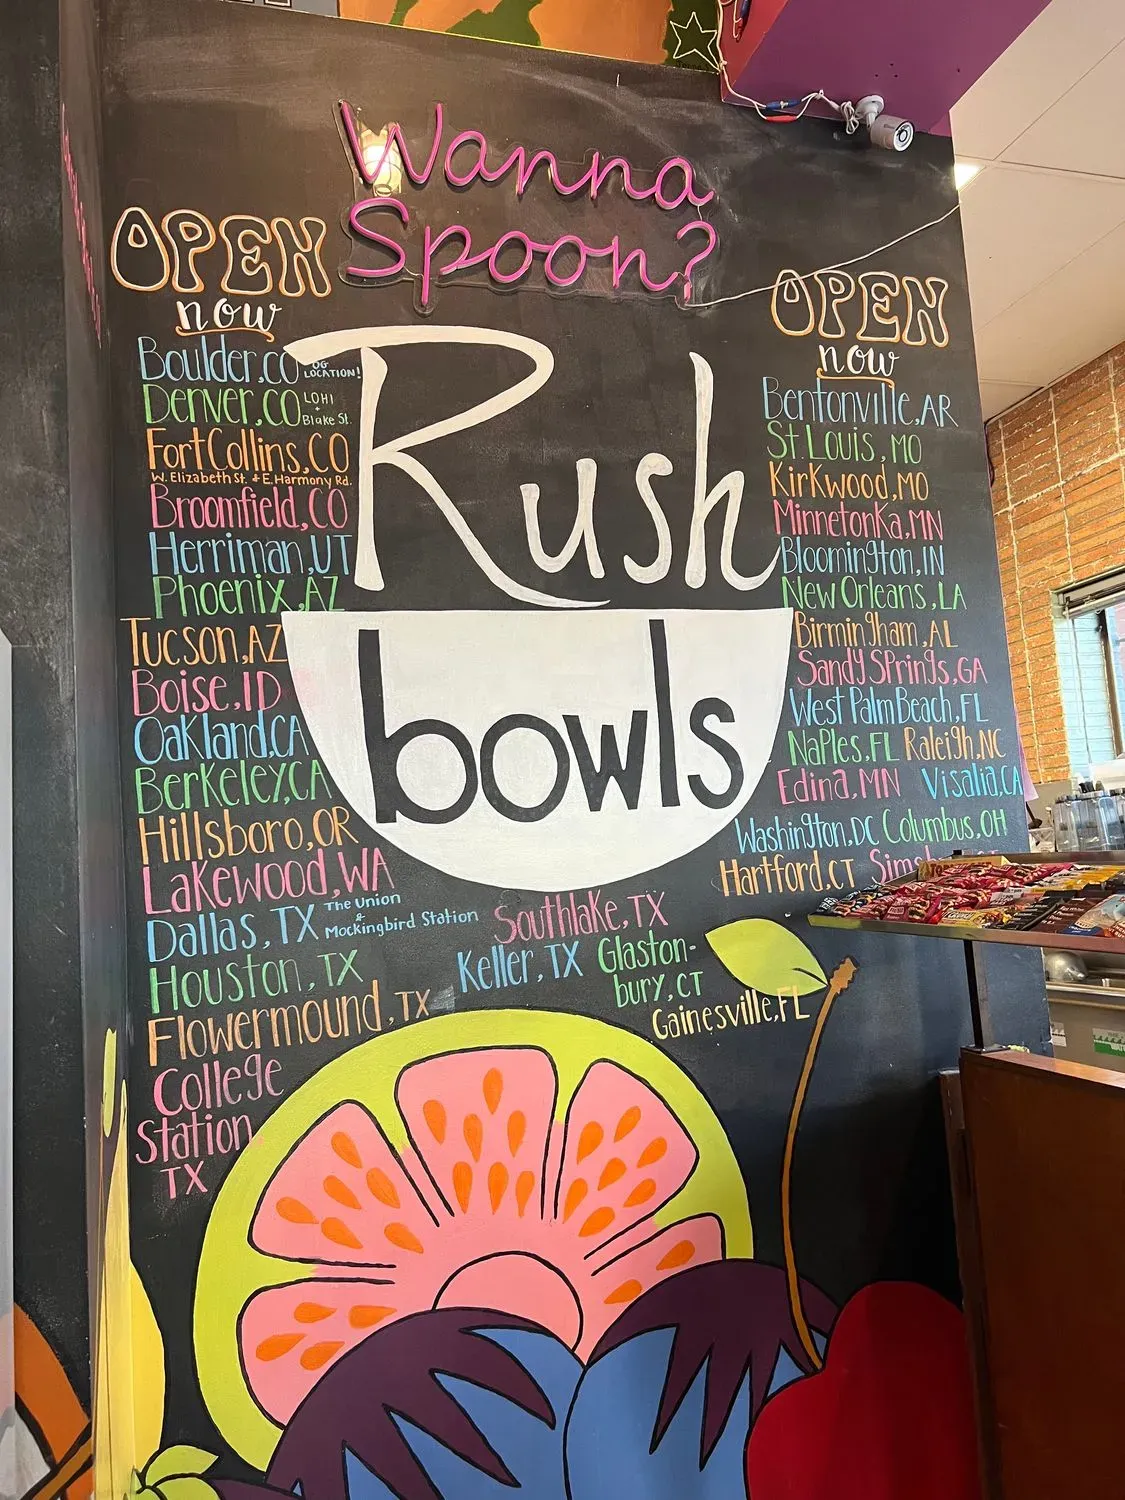 Wanna
Spoon?
OPEN
now
Boulder, CO OG LOCATION!
Denver, CO LOHI + Blake St.
Fort Collins, CO
W. Elizabeth St. & E. Harmony Rd.
Broomfield, CO
Herriman, UT
Phoenix, AZ
Tucson, AZ
Boise, ID
Oakland, CA
Berkeley, CA
Hillsboro, OR
Lakewood, WA
Dallas, TX The Union & Mockingbird Station
Houston, TX
Flowermound, TX
College
Station
TX
Rush
bowls
Southlake, TX
Keller, TX
Glaston-
bury, CT
Gainesville, FL
OPEN
now
Bentonville, AR
St. Louis, MO
Kirkwood, MO
Minnetonka, MN
Bloomington, IN
New Orleans, LA
Birmingham, AL
Sandy Springs, GA
West Palm Beach, FL
Naples, FL Raleigh, NC
Edina, MN Visalia, CA
Washington, DC Columbus, OH
Hartford, CT